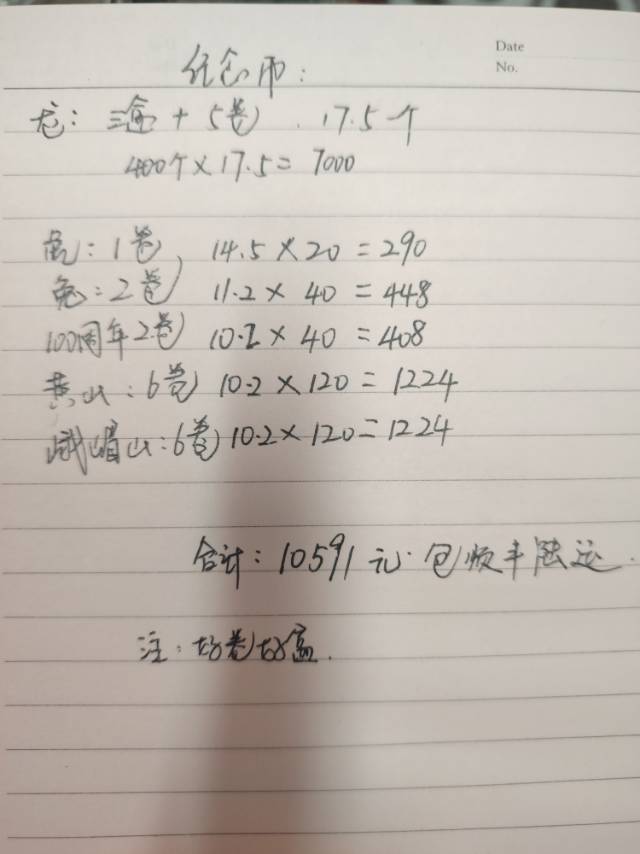 Date
No.
纪念币：
龙：三盒+5卷，17.5个
400个×17.5=7000
虎：1卷，14.5×20=290
兔：2卷 11.2×40=448
100周年2卷 10.2×40=408
黄山：6卷 10.2×120=1224
峨嵋山：6卷 10.2×120=1224
合计：10591元.包顺丰陆运.
注：好卷好盒.